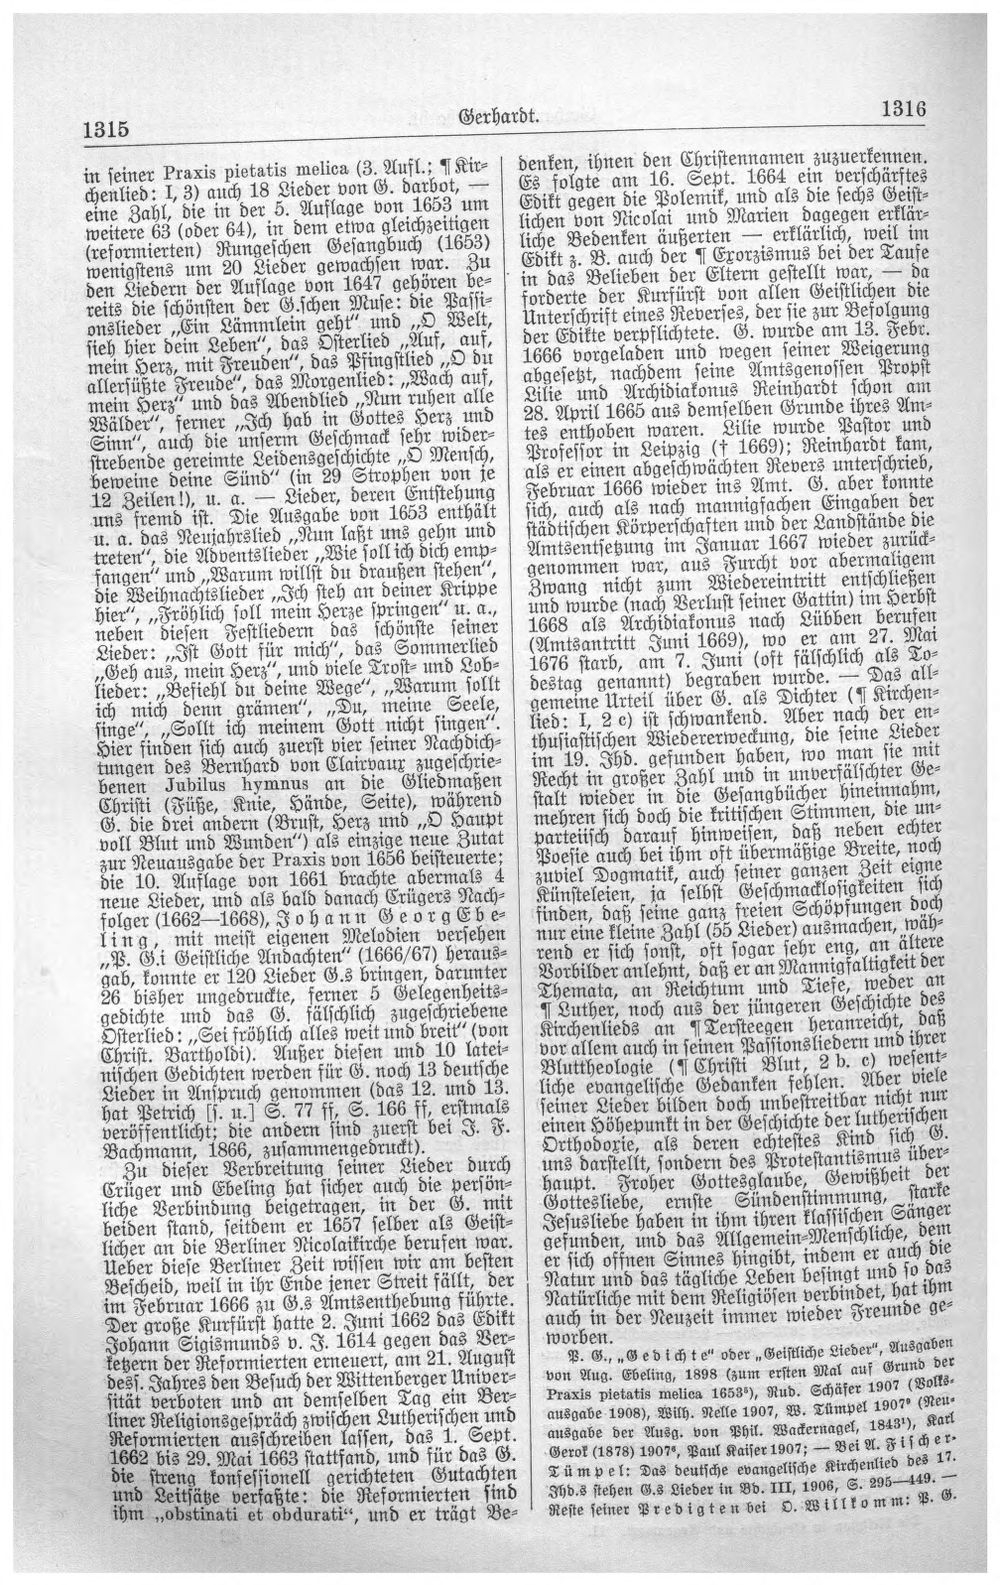 1315
Gerhardt.
1316
in seiner Praxis pietatis melica (3. Aufl.; ¶ Kir=
chenlied: I, 3) auch 18 Lieder von G. darbot, —
eine Zahl, die in der 5. Auflage von 1653 um
weitere 63 (oder 64), in dem etwa gleichzeitigen
(reformierten) Rungeschen Gesangbuch (1653)
wenigstens um 20 Lieder gewachsen war. Zu
den Liedern der Auflage von 1647 gehören be=
reits die schönsten der G.schen Muse: die Passi=
onslieder „Ein Lämmlein geht“ und „O Welt,
sieh hier dein Leben“, das Osterlied „Auf, auf,
mein Herz, mit Freuden“, das Pfingstlied „O du
allersüßte Freude“, das Morgenlied: „Wach auf,
mein Herz“ und das Abendlied „Nun ruhen alle
Wälder“, ferner „Ich hab in Gottes Herz und
Sinn“, auch die unserm Geschmack sehr wider=
strebende gereimte Leidensgeschichte „O Mensch,
beweine deine Sünd“ (in 29 Strophen von je
12 Zeilen!), u. a. — Lieder, deren Entstehung
uns fremd ist. Die Ausgabe von 1653 enthält
u. a. das Neujahrslied „Nun laßt uns gehn und
treten“, die Adventslieder „Wie soll ich dich emp=
fangen“ und „Warum willst du draußen stehen“,
die Weihnachtslieder „Ich steh an deiner Krippe
hier“, „Fröhlich soll mein Herze springen“ u. a.,
neben diesen Festliedern das schönste seiner
Lieder: „Ist Gott für mich“, das Sommerlied
„Geh aus, mein Herz“, und viele Trost= und Lob=
lieder: „Befiehl du deine Wege“, „Warum sollt
ich mich denn grämen“, „Du, meine Seele,
singe“, „Sollt ich meinem Gott nicht singen“.
Hier finden sich auch zuerst vier seiner Nachdich=
tungen des Bernhard von Clairvaux zugeschrie=
benen Jubilus hymnus an die Gliedmaßen
Christi (Füße, Knie, Hände, Seite), während
G. die drei andern (Brust, Herz und „O Haupt
voll Blut und Wunden“) als einzige neue Zutat
zur Neuausgabe der Praxis von 1656 beisteuerte;
die 10. Auflage von 1661 brachte abermals 4
neue Lieder, und als bald danach Crügers Nach=
folger (1662—1668), Johann Georg Ebe=
ling, mit meist eigenen Melodien versehen
„P. G.i Geistliche Andachten“ (1666/67) heraus=
gab, konnte er 120 Lieder G.s bringen, darunter
26 bisher ungedruckte, ferner 5 Gelegenheits=
gedichte und das G. fälschlich zugeschriebene
Osterlied: „Sei fröhlich alles weit und breit“ (von
Christ. Bartholdi). Außer diesen und 10 latei=
nischen Gedichten werden für G. noch 13 deutsche
Lieder in Anspruch genommen (das 12. und 13.
hat Petrich [s. u.] S. 77 ff, S. 166 ff, erstmals
veröffentlicht; die andern sind zuerst bei J. F.
Bachmann, 1866, zusammengedruckt).
Zu dieser Verbreitung seiner Lieder durch
Crüger und Ebeling hat sicher auch die persön=
liche Verbindung beigetragen, in der G. mit
beiden stand, seitdem er 1657 selber als Geist=
licher an die Berliner Nicolaikirche berufen war.
Ueber diese Berliner Zeit wissen wir am besten
Bescheid, weil in ihr Ende jener Streit fällt, der
im Februar 1666 zu G.s Amtsenthebung führte.
Der große Kurfürst hatte 2. Juni 1662 das Edikt
Johann Sigismunds v. J. 1614 gegen das Ver=
ketzern der Reformierten erneuert, am 21. August
dess. Jahres den Besuch der Wittenberger Univer=
sität verboten und an demselben Tag ein Ber=
liner Religionsgespräch zwischen Lutherischen und
Reformierten ausschreiben lassen, das 1. Sept.
1662 bis 29. Mai 1663 stattfand, und für das G.
die streng konfessionell gerichteten Gutachten
und Leitsätze verfaßte: die Reformierten sind
ihm „obstinati et obdurati“, und er trägt Be=
denken, ihnen den Christennamen zuzuerkennen.
Es folgte am 16. Sept. 1664 ein verschärftes
Edikt gegen die Polemik, und als die sechs Geist=
lichen von Nicolai und Marien dagegen erklär=
liche Bedenken äußerten — erklärlich, weil im
Edikt z. B. auch der ¶ Exorzismus bei der Taufe
in das Belieben der Eltern gestellt war, — da
forderte der Kurfürst von allen Geistlichen die
Unterschrift eines Reverses, der sie zur Befolgung
der Edikte verpflichtete. G. wurde am 13. Febr.
1666 vorgeladen und wegen seiner Weigerung
abgesetzt, nachdem seine Amtsgenossen Propst
Lilie und Archidiakonus Reinhardt schon am
28. April 1665 aus demselben Grunde ihres Am=
tes enthoben waren. Lilie wurde Pastor und
Professor in Leipzig († 1669); Reinhardt kam,
als er einen abgeschwächten Revers unterschrieb,
Februar 1666 wieder ins Amt. G. aber konnte
sich, auch als nach mannigfachen Eingaben der
städtischen Körperschaften und der Landstände die
Amtsentsetzung im Januar 1667 wieder zurück=
genommen war, aus Furcht vor abermaligem
Zwang nicht zum Wiedereintritt entschließen
und wurde (nach Verlust seiner Gattin) im Herbst
1668 als Archidiakonus nach Lübben berufen
(Amtsantritt Juni 1669), wo er am 27. Mai
1676 starb, am 7. Juni (oft fälschlich als To=
destag genannt) begraben wurde. — Das all=
gemeine Urteil über G. als Dichter (¶ Kirchen=
lied: I, 2 c) ist schwankend. Aber nach der en=
thusiastischen Wiedererweckung, die seine Lieder
im 19. Jhd. gefunden haben, wo man sie mit
Recht in großer Zahl und in unverfälschter Ge=
stalt wieder in die Gesangbücher hineinnahm,
mehren sich doch die kritischen Stimmen, die un=
parteiisch darauf hinweisen, daß neben echter
Poesie auch bei ihm oft übermäßige Breite, noch
zuviel Dogmatik, auch seiner ganzen Zeit eigne
Künsteleien, ja selbst Geschmacklosigkeiten sich
finden, daß seine ganz freien Schöpfungen doch
nur eine kleine Zahl (55 Lieder) ausmachen, wäh=
rend er sich sonst, oft sogar sehr eng, an ältere
Vorbilder anlehnt, daß er an Mannigfaltigkeit der
Themata, an Reichtum und Tiefe, weder an
¶ Luther, noch aus der jüngeren Geschichte des
Kirchenlieds an ¶ Tersteegen heranreicht, daß
vor allem auch in seinen Passionsliedern und ihrer
Bluttheologie (¶ Christi Blut, 2 b. c) wesent=
liche evangelische Gedanken fehlen. Aber viele
seiner Lieder bilden doch unbestreitbar nicht nur
einen Höhepunkt in der Geschichte der lutherischen
Orthodoxie, als deren echtestes Kind sich G.
uns darstellt, sondern des Protestantismus über=
haupt. Froher Gottesglaube, Gewißheit der
Gottesliebe, ernste Sündenstimmung, starke
Jesusliebe haben in ihm ihren klassischen Sänger
gefunden, und das Allgemein=Menschliche, dem
er sich offnen Sinnes hingibt, indem er auch die
Natur und das tägliche Leben besingt und so das
Natürliche mit dem Religiösen verbindet, hat ihm
auch in der Neuzeit immer wieder Freunde ge=
worben.
P. G., „Gedichte“ oder „Geistliche Lieder“, Ausgaben
von Aug. Ebeling, 1898 (zum ersten Mal auf Grund der
Praxis pietatis melica 1653⁵), Rud. Schäfer 1907 (Volks=
ausgabe 1908), Wilh. Nelle 1907, W. Tümpel 1907⁹ (Neu=
ausgabe der Ausg. von Phil. Wackernagel, 1843¹), Karl
Gerok (1878) 1907⁶, Paul Kaiser 1907; — Bei A. Fischer=
Tümpel: Das deutsche evangelische Kirchenlied des 17.
Jhd.s stehen G.s Lieder in Bd. III, 1906, S. 295—449. —
Reste seiner Predigten bei O. Willkomm: P. G.